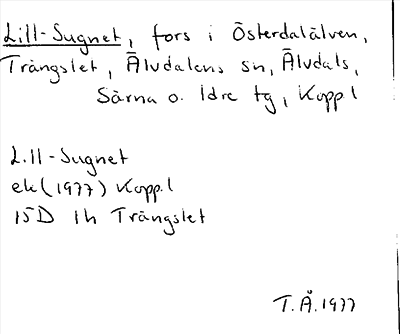 Lill-Sugnet, fors i Österdalälven,
Trängslet, Älvdalens sn, Älvdals,
Särna o. Idre tg, Koppl
Lill-Sugnet
ek (1977) Koppl
15D 1h Trängslet
T.Å.1977